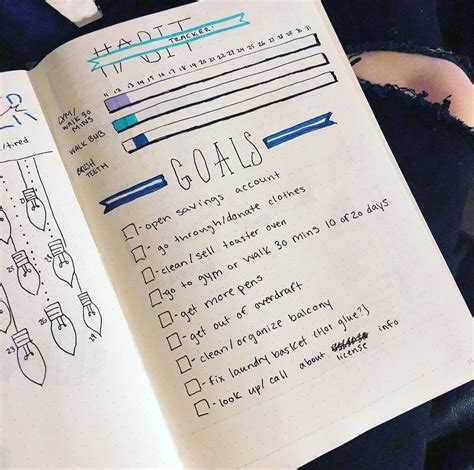 HABIT
TRACKER!
11 12 13 14 15 16 17 18 19 20 21 22 23 24 25 26 27 28 29 30 31
GYM/
WALK 30
MINS
WALK BUB
BRUSH
TEETH
GOALS
- open savings account
- go through/donate clothes
- clean/sell toaster oven
- go to gym or walk 30 mins 10 of 20 days.
- get more pens
- get out of overdraft
- clean/organize balcony
- fix laundry basket (Hot glue?)
- look up/call about license info
/tired